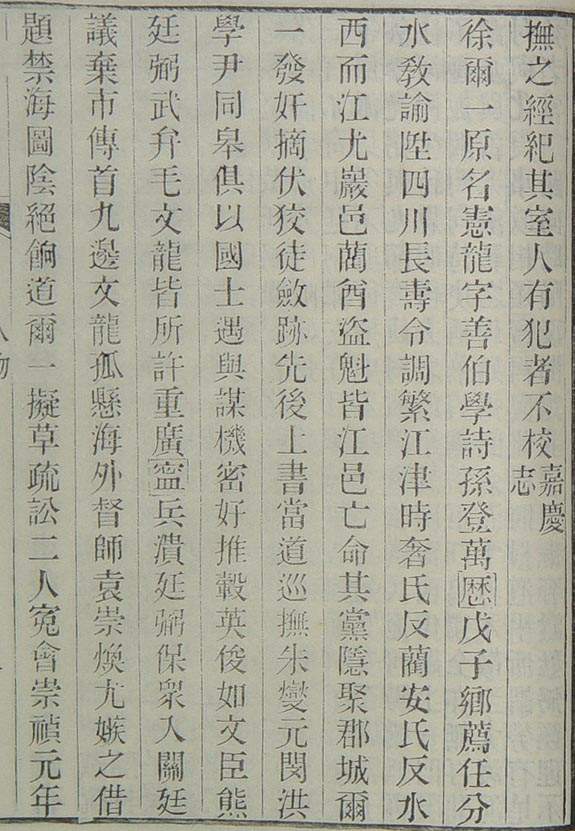 撫之經紀其室人有犯者不校嘉慶志
徐爾一原名憲龍字善伯學詩孫登萬歷戊子鄉薦任分
水敎諭陞四川長壽令調繁江津時奢氏反藺安氏反水
西而江尤巖邑藺酋盜魁皆江邑亡命其黨隱聚郡城爾
一發奸摘伏狡徒斂跡先後上書當道巡撫朱燮元閔洪
學尹同皋俱以國士遇與謀機密好推轂英俊如文臣熊
廷弼武弁毛文龍皆所許重廣寍兵潰廷弼保衆入關廷
議棄市傳首九邊文龍孤懸海外督師袁崇煥尤嫉之借
題禁海圖陰絕餉道爾一擬草疏訟二人冤會崇禎元年
人物